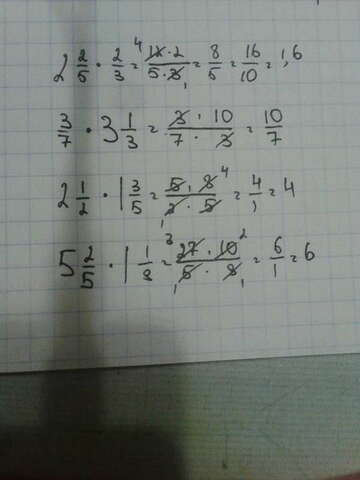 2 2/5 · 2/3 = 12·2/5·3 = 8/5 = 16/10 = 1,6
3/7 · 3 1/3 = 3·10/7·3 = 10/7
2 1/2 · 1 3/5 = 5·8/2·5 = 4/1 = 4
5 2/5 · 1 1/9 = 27·10/5·9 = 6/1 = 6